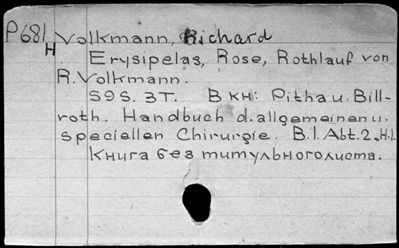 P681 Volkmann, Richard
H Erysipelas, Rose, Rothlauf von
R. Volkmann.
S9S. 3T. В кн: Pitha u. Bill-
roth. Handbuch d. allgemeinen u.
speciellen Chirurgie. B.I. Abt. 2. H.I.
Книга без титульного листа.